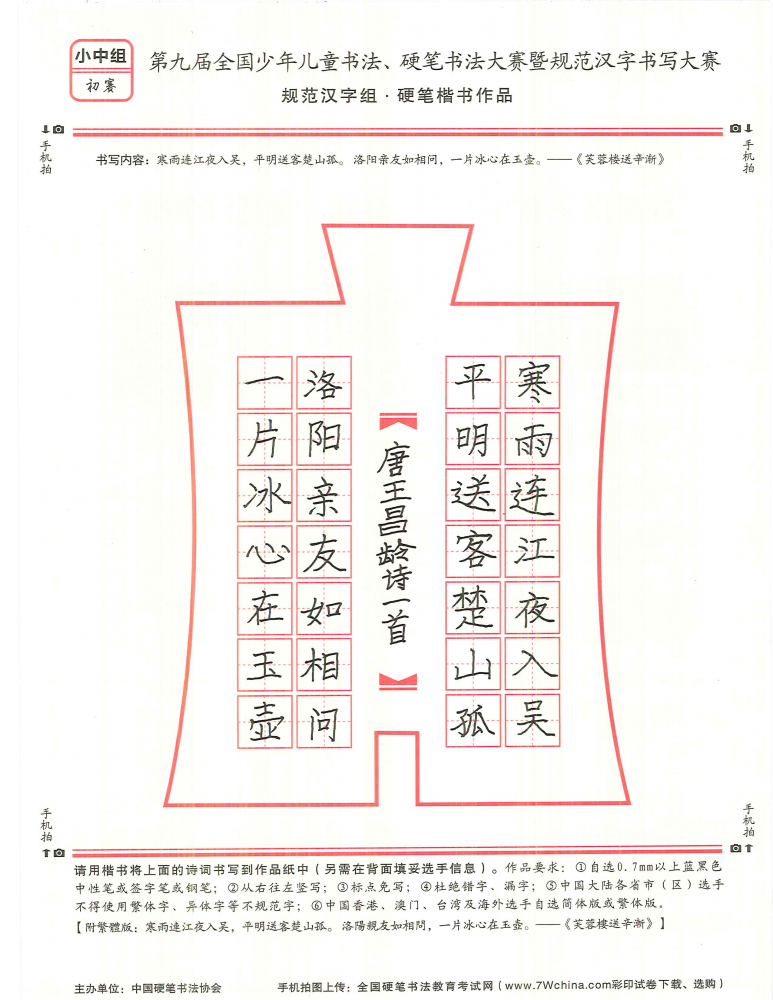 小中组
初赛
第九届全国少年儿童书法、硬笔书法大赛暨规范汉字书写大赛
规范汉字组·硬笔楷书作品
手机拍
手机拍
书写内容：寒雨连江夜入吴，平明送客楚山孤。洛阳亲友如相问，一片冰心在玉壶。——《芙蓉楼送辛渐》
寒雨连江夜入吴
平明送客楚山孤
唐王昌龄诗一首
洛阳亲友如相问
一片冰心在玉壶
手机拍
手机拍
请用楷书将上面的诗词书写到作品纸中（另需在背面填妥选手信息）。作品要求：①自选0.7mm以上蓝黑色
中性笔或签字笔或钢笔；②从右往左竖写；③标点免写；④杜绝错字、漏字；⑤中国大陆各省市（区）选手
不得使用繁体字、异体字等不规范字；⑥中国香港、澳门、台湾及海外选手自选简体版或繁体版。
【附繁體版：寒雨連江夜入吳，平明送客楚山孤。洛陽親友如相問，一片冰心在玉壺。——《芙蓉樓送辛漸》】
主办单位：中国硬笔书法协会
手机拍图上传：全国硬笔书法教育考试网（www.7Wchina.com彩印试卷下载、选购）